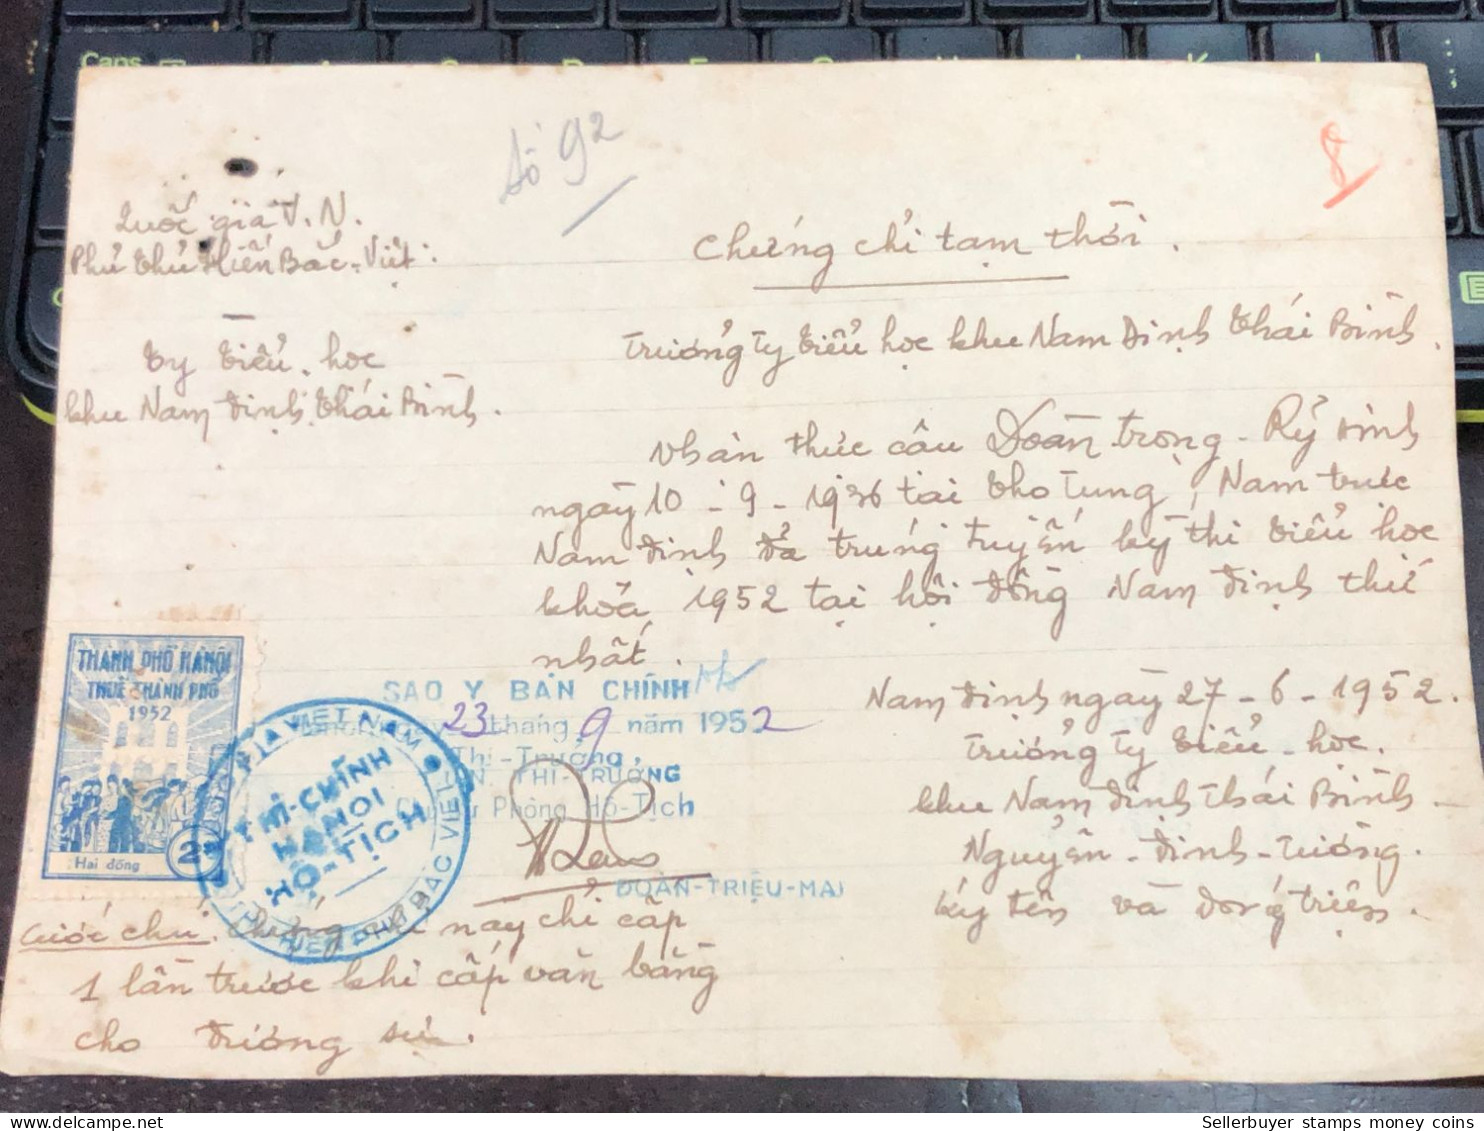 Số 92
8
Quốc gia V.N.
Phủ thủ Hiến Bắc-Việt.
Ty tiểu học
khu Nam định thái Bình.
Chứng chỉ tạm thời.
Trưởng ty tiểu học khu Nam Định thái Bình.
nhàn thực câu Doàn trọng - Rỹ sinh
ngày 10 - 9 - 1936 tại tho Tung, Nam trực
Nam định đã trúng tuyển kỳ thi tiểu học
khóa 1952 tại hội đồng Nam định thứ
nhất.
Nam định ngày 27 - 6 - 1952.
Trưởng ty tiểu - học.
khu Nam định thái Bình
Nguyễn - đình - tường.
ký tên và đóng triện.
THÀNH PHỐ HANỘI
THUẾ THÀNH PHỐ
1952
2đ
Hai đồng
SAO Y BẢN CHÍNH
23 tháng 9 năm 1952
Thị-Trưởng,
THỊ-TRƯỞNG
Phòng Hộ-Tịch
ĐOÀN-TRIỆU-MAI
VIỆT NAM
THỊ-CHÍNH
HANOI
HỘ-TỊCH
BẮC VIỆT
Cước chú. Chứng chỉ này chỉ cấp
1 lần trước khi cấp văn bằng
cho đương sự.
Caps
Sellerbuyer stamps money coins